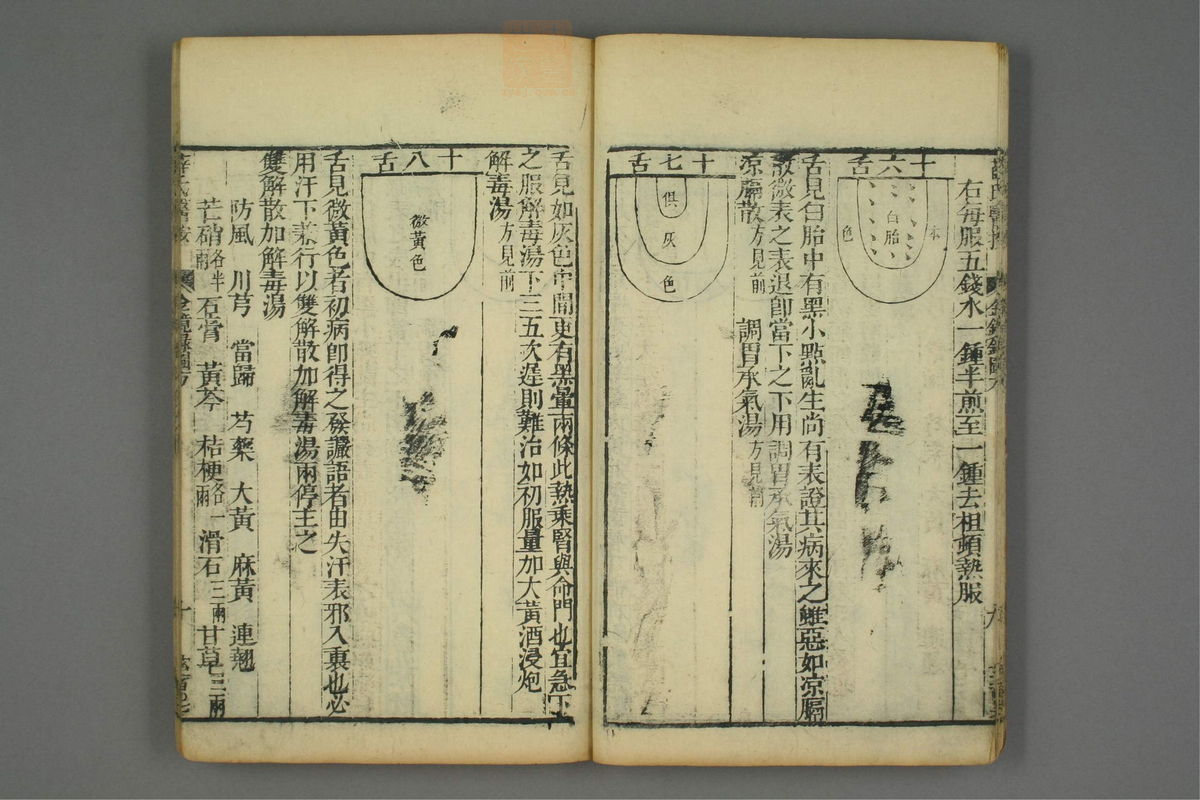 右每服五錢水一鍾半煎至一鍾去柤頓熱服
十六舌
本
白胎
色
舌見白胎中有黑小點亂生尚有表證其病來之雖惡如凉膈
散微表之表退卽當下之下用調胃承氣湯
凉膈散方見前 調胃承氣湯方見前
十七舌
俱
灰
色
舌見如灰色中間更有黑暈兩條此熱乘腎與命門也宜急下
之服解毒湯下三五次遲則難治如初服量加大黃酒浸炮
解毒湯方見前
十八舌
微黃色
舌見微黃色者初病卽得之發讝語者由失汗表邪入裏也必
用汗下兼行以雙解散加解毒湯兩停主之
雙解散加解毒湯
防風 川芎 當歸 芍藥 大黃 麻黃 連翹
芒硝各半兩 石膏 黃芩 桔梗各一兩 滑石三兩 甘草二兩